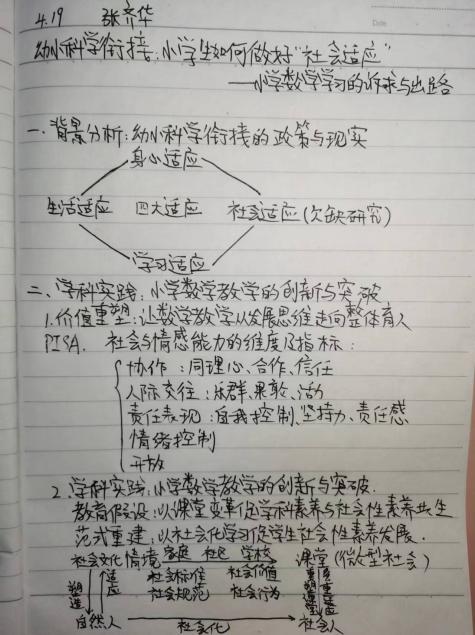 4.19 张齐华
Date
幼小科学衔接:小学生如何做好"社会适应"
——小学数学学习的诉求与出路
一、背景分析:幼小科学衔接的政策与现实
身心适应
生活适应 四大适应 社会适应(欠缺研究)
学习适应
二、学科实践:小学数学教学的创新与突破
1.价值重塑:让数学教学从发展思维走向整体育人
PISA. 社会与情感能力的维度及指标:
协作:同理心、合作、信任
人际交往:乐群、果敢、活力
责任表现:自我控制、坚持力、责任感
情绪控制
开放
2.学科实践:小学数学教学的创新与突破.
教育假设:以课堂变革促学科素养与社会性素养共生
范式重建:以社会化学习促学生社会性素养发展.
社会文化情境 家庭 社区 学校 课堂(微型社会)
塑造 适应 社会标准 社会价值
社会规范 社会行为
自然人 社会化 社会人